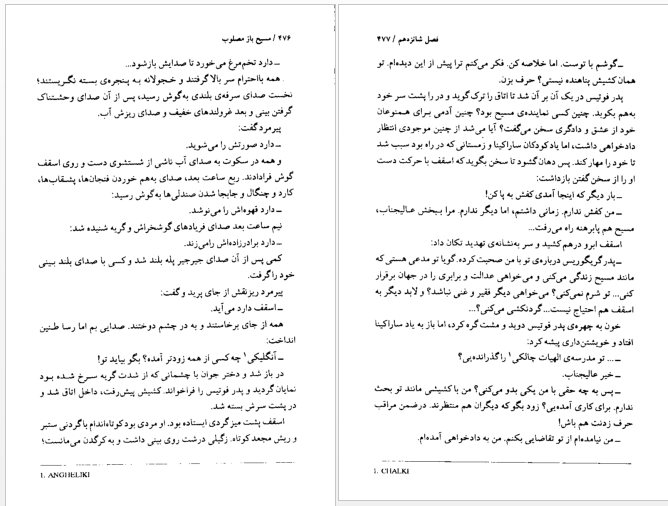 ۴۷۶ / مسیح باز مصلوب
ــ دارد تخم‌مرغ می‌خورد تا صدایش بازشود...
همه بااحترام سر بالا گرفتند و خجولانه به پنجره‌ی بسته نگریستند؛
نخست صدای سرفه‌ی بلندی به‌گوش رسید، پس از آن صدای وحشتناک
گرفتن بینی و بعد غرولندهای خفیف و صدای ریزش آب.
پیرمرد گفت:
ــ دارد صورتش را می‌شوید.
و همه در سکوت به صدای آب ناشی از شستشوی دست و روی اسقف
گوش فرادادند. ربع ساعت بعد، صدای به‌هم خوردن فنجان‌ها، بشقاب‌ها،
کارد و چنگال و جابجا شدن صندلی‌ها به‌گوش رسید:
ــ دارد قهوه‌اش را می‌نوشد.
نیم ساعت بعد صدای فریادهای گوشخراش و گریه شنیده شد:
ــ دارد برادرزاده‌اش را می‌زند.
کمی پس از آن صدای جیرجیر پله بلند شد و کسی با صدای بلند بینی
خود را گرفت.
پیرمرد ریزنقش از جای پرید و گفت:
ــ اسقف دارد می‌آید.
همه از جای برخاستند و به در چشم دوختند. صدایی بم اما رسا طنین
انداخت:
ــ آنگلیکی۱ چه کسی از همه زودتر آمده؟ بگو بیاید تو!
در باز شد و دختر جوان با چشمانی که از شدت گریه سرخ شده بود
نمایان گردید و پدر فوتیس را فراخواند. کشیش پیش‌رفت، داخل اتاق شد و
در پشت سرش بسته شد.
اسقف پشت میز گردی ایستاده بود. او مردی بود کوتاه‌اندام با گردنی ستبر
و ریش مجعد کوتاه. زگیلی درشت روی بینی داشت و به کرگدن می‌مانست؛
1. ANGHELIKI
فصل شانزدهم / ۴۷۷
ــ گوشم با توست. اما خلاصه کن. فکر می‌کنم ترا پیش از این دیده‌ام. تو
همان کشیش پناهنده نیستی؟ حرف بزن.
پدر فوتیس در یک آن بر آن شد تا اتاق را ترک گوید و در را پشت سر خود
به‌هم بکوبد. چنین کسی نماینده‌ی مسیح بود؟ چنین آدمی برای هم‌نوعان
خود از عشق و دادگری سخن می‌گفت؟ آیا می‌شد از چنین موجودی انتظار
دادخواهی داشت، اما یاد کودکان ساراکینا و زمستانی که در راه بود سبب شد
تا خود را مهار کند. پس دهان گشود تا سخن بگوید که اسقف با حرکت دست
او را از سخن گفتن بازداشت:
ــ بار دیگر که اینجا آمدی کفش به پا کن!
ــ من کفش ندارم. زمانی داشتم، اما دیگر ندارم. مرا ببخش عالیجناب،
مسیح هم پابرهنه راه می‌رفت...
اسقف ابرو درهم کشید و سر به‌نشانه‌ی تهدید تکان داد:
ــ پدر گریگوریس درباره‌ی تو با من صحبت کرده. گویا تو مدعی هستی که
مانند مسیح زندگی می‌کنی و می‌خواهی عدالت و برابری را در جهان برقرار
کنی... تو شرم نمی‌کنی؟ می‌خواهی دیگر فقیر و غنی نباشد؟ و لابد دیگر به
اسقف هم احتیاج نیست... گردنکشی می‌کنی؟...
خون به چهره‌ی پدر فوتیس دوید و مشت گره کرد، اما باز به یاد ساراکینا
افتاد و خویشتن‌داری پیشه کرد:
ــ ... تو مدرسه‌ی الهیات چالکی۱ را گذرانده‌یی؟
ــ خیر عالیجناب.
ــ پس به چه حقی با من یکی بدو می‌کنی؟ من با کشیشی مانند تو بحث
ندارم. برای کاری آمده‌یی؟ زود بگو که دیگران هم منتظرند. درضمن مراقب
حرف زدنت هم باش!
ــ من نیامده‌ام از تو تقاضایی بکنم. من به دادخواهی آمده‌ام.
1. CHALKI